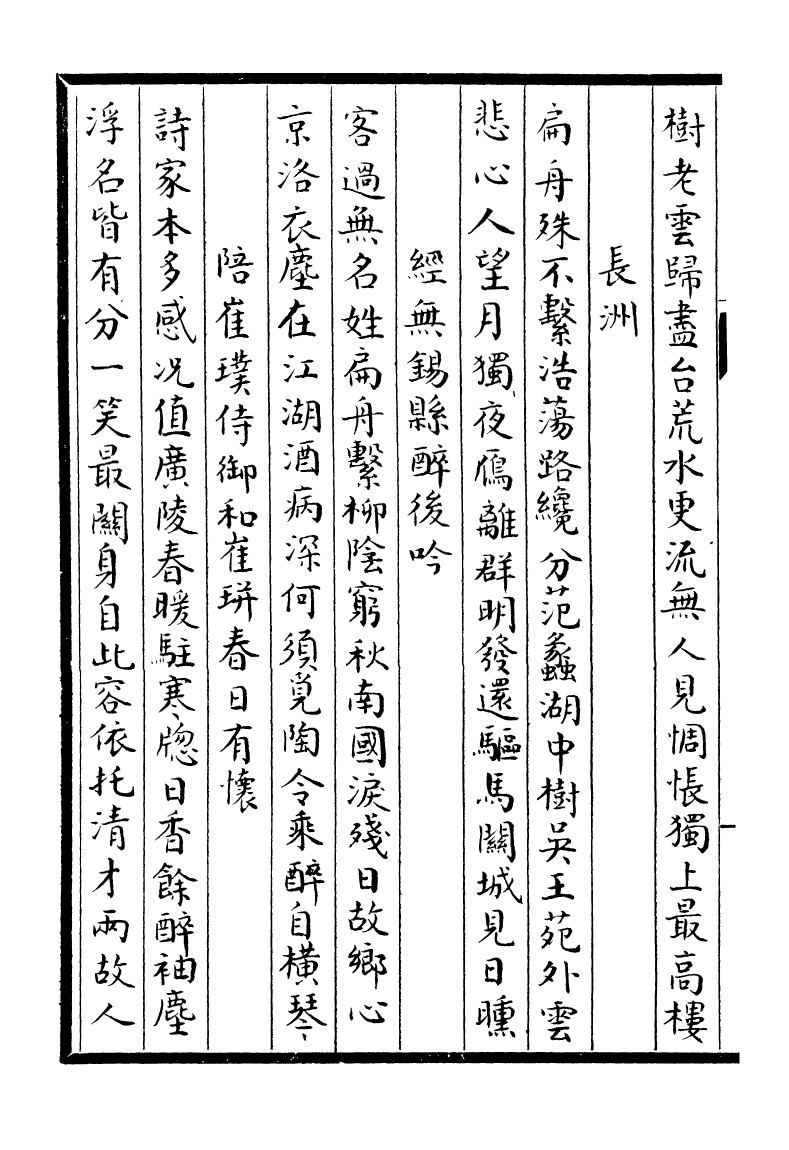 樹老雲歸盡台荒水更流無人見惆悵獨上最高樓
長洲
扁舟殊不繫浩蕩路纔分范蠡湖中樹吳王苑外雲
悲心人望月獨夜鴈離群明發還驅馬關城見日曛
經無錫縣醉後吟
客過無名姓扁舟繫柳陰窮秋南國淚殘日故鄉心
京洛衣塵在江湖酒病深何須覓陶令乘醉自橫琴
陪崔璞侍御和崔珙春日有懷
詩家本多感况值廣陵春暖駐寒牕日香餘醉袖塵
浮名皆有分一笑最關身自此容依托清才兩故人